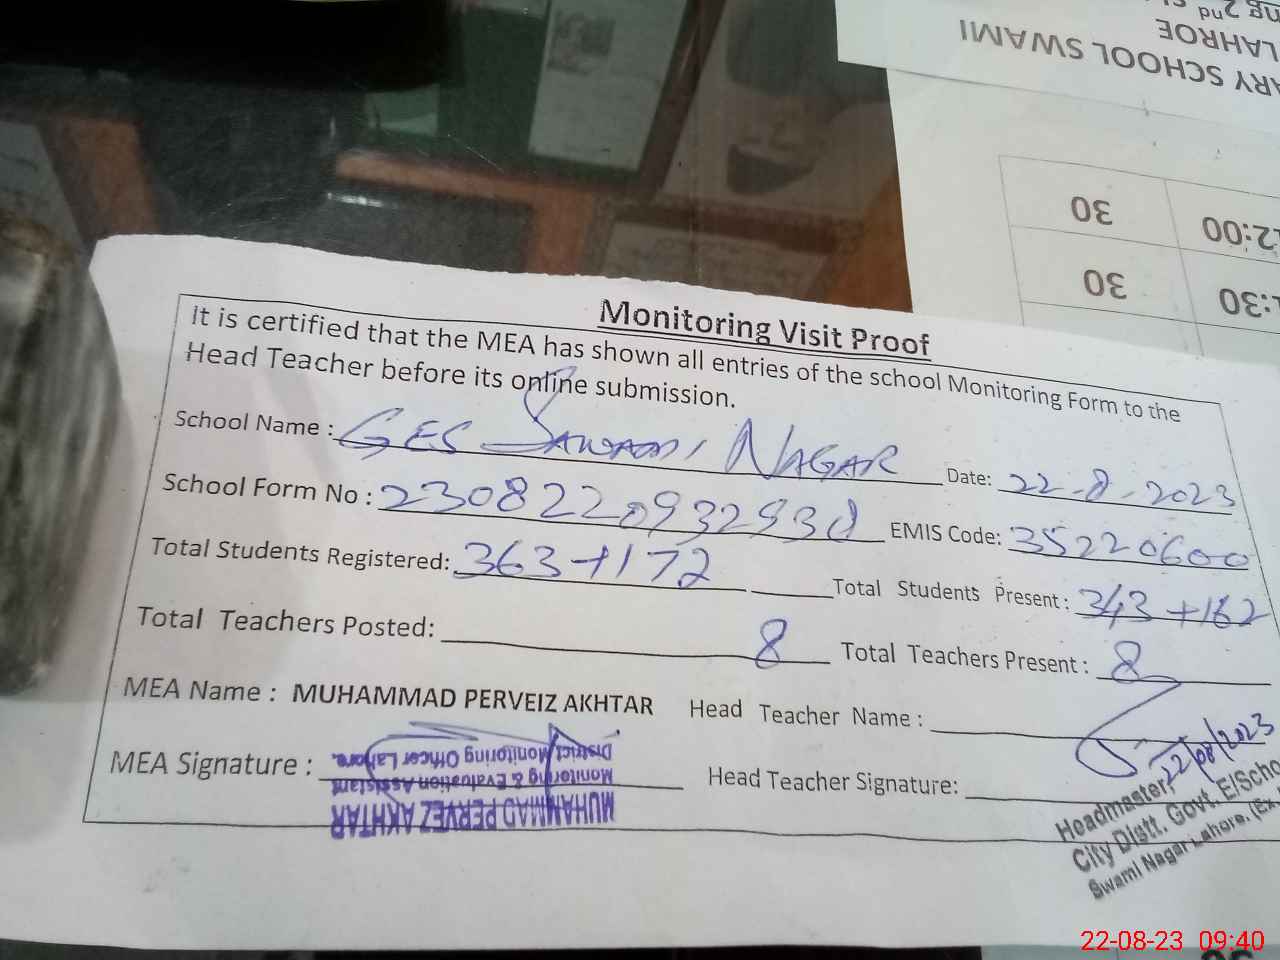 2nd
LAHROE
ARY SCHOOL SWAMI
30
2:00
30
:30
Monitoring Visit Proof
It is certified that the MEA has shown all entries of the school Monitoring Form to the
Head Teacher before its online submission.
School Name : GES Swami Nagar Date: 22-8-2023
School Form No : EMIS Code: 35220600
Total Students Registered: 363+172 Total Students Present : 343+162
Total Teachers Posted: 8 Total Teachers Present : 8
MEA Name : MUHAMMAD PERVEIZ AKHTAR Head Teacher Name :
MEA Signature : Head Teacher Signature:
MUHAMMAD PERVEZ AKHTAR
Monitoring & Evaluation Assistant
District Monitoring Officer Lahore.
22/08/2023
Headmaster,
City Distt. Govt. E/Scho
Swami Nagar Lahore. (Ex.
22-08-23 09:40